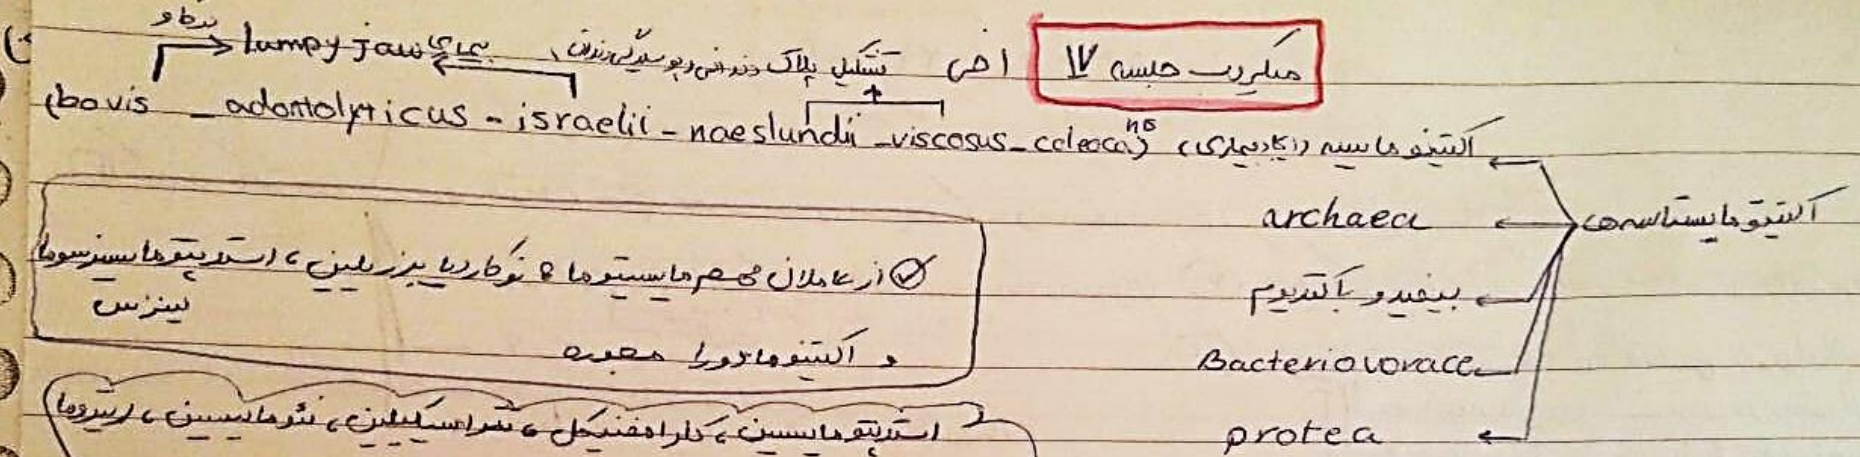 میکروب جلسه 17 اخی
تشکیل پلاک دندانی و پوسیدگی دندان، بیماری lumpy jaw در گاو
اکتینومایسه (ایجاد بیماری) (bovis _ odontolyticus - israelii - naeslundii _ viscosus _
اکتینومایستاسه ها
archaea
بیفیدو باکتریوم
Bacteriovorace
protea
از عاملان مهم مایستوما: نوکاردیا برزیلین، استرپتومایسز سوما
لینزس
و اکتینومادورا
استرپتومایسین، کلرامفنیکل، تتراسیکلین، نئومایسین، اریتروما